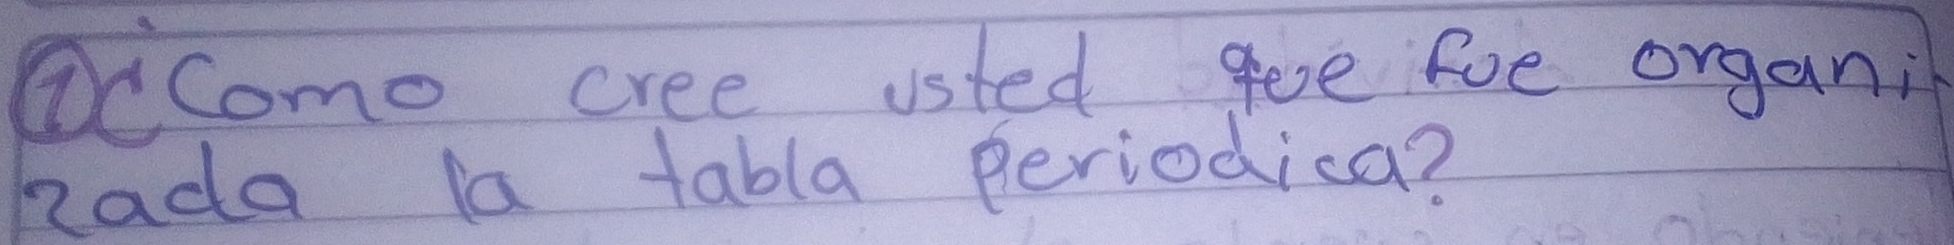 ① ¿Como cree usted que fue organi
zada la tabla periodica?